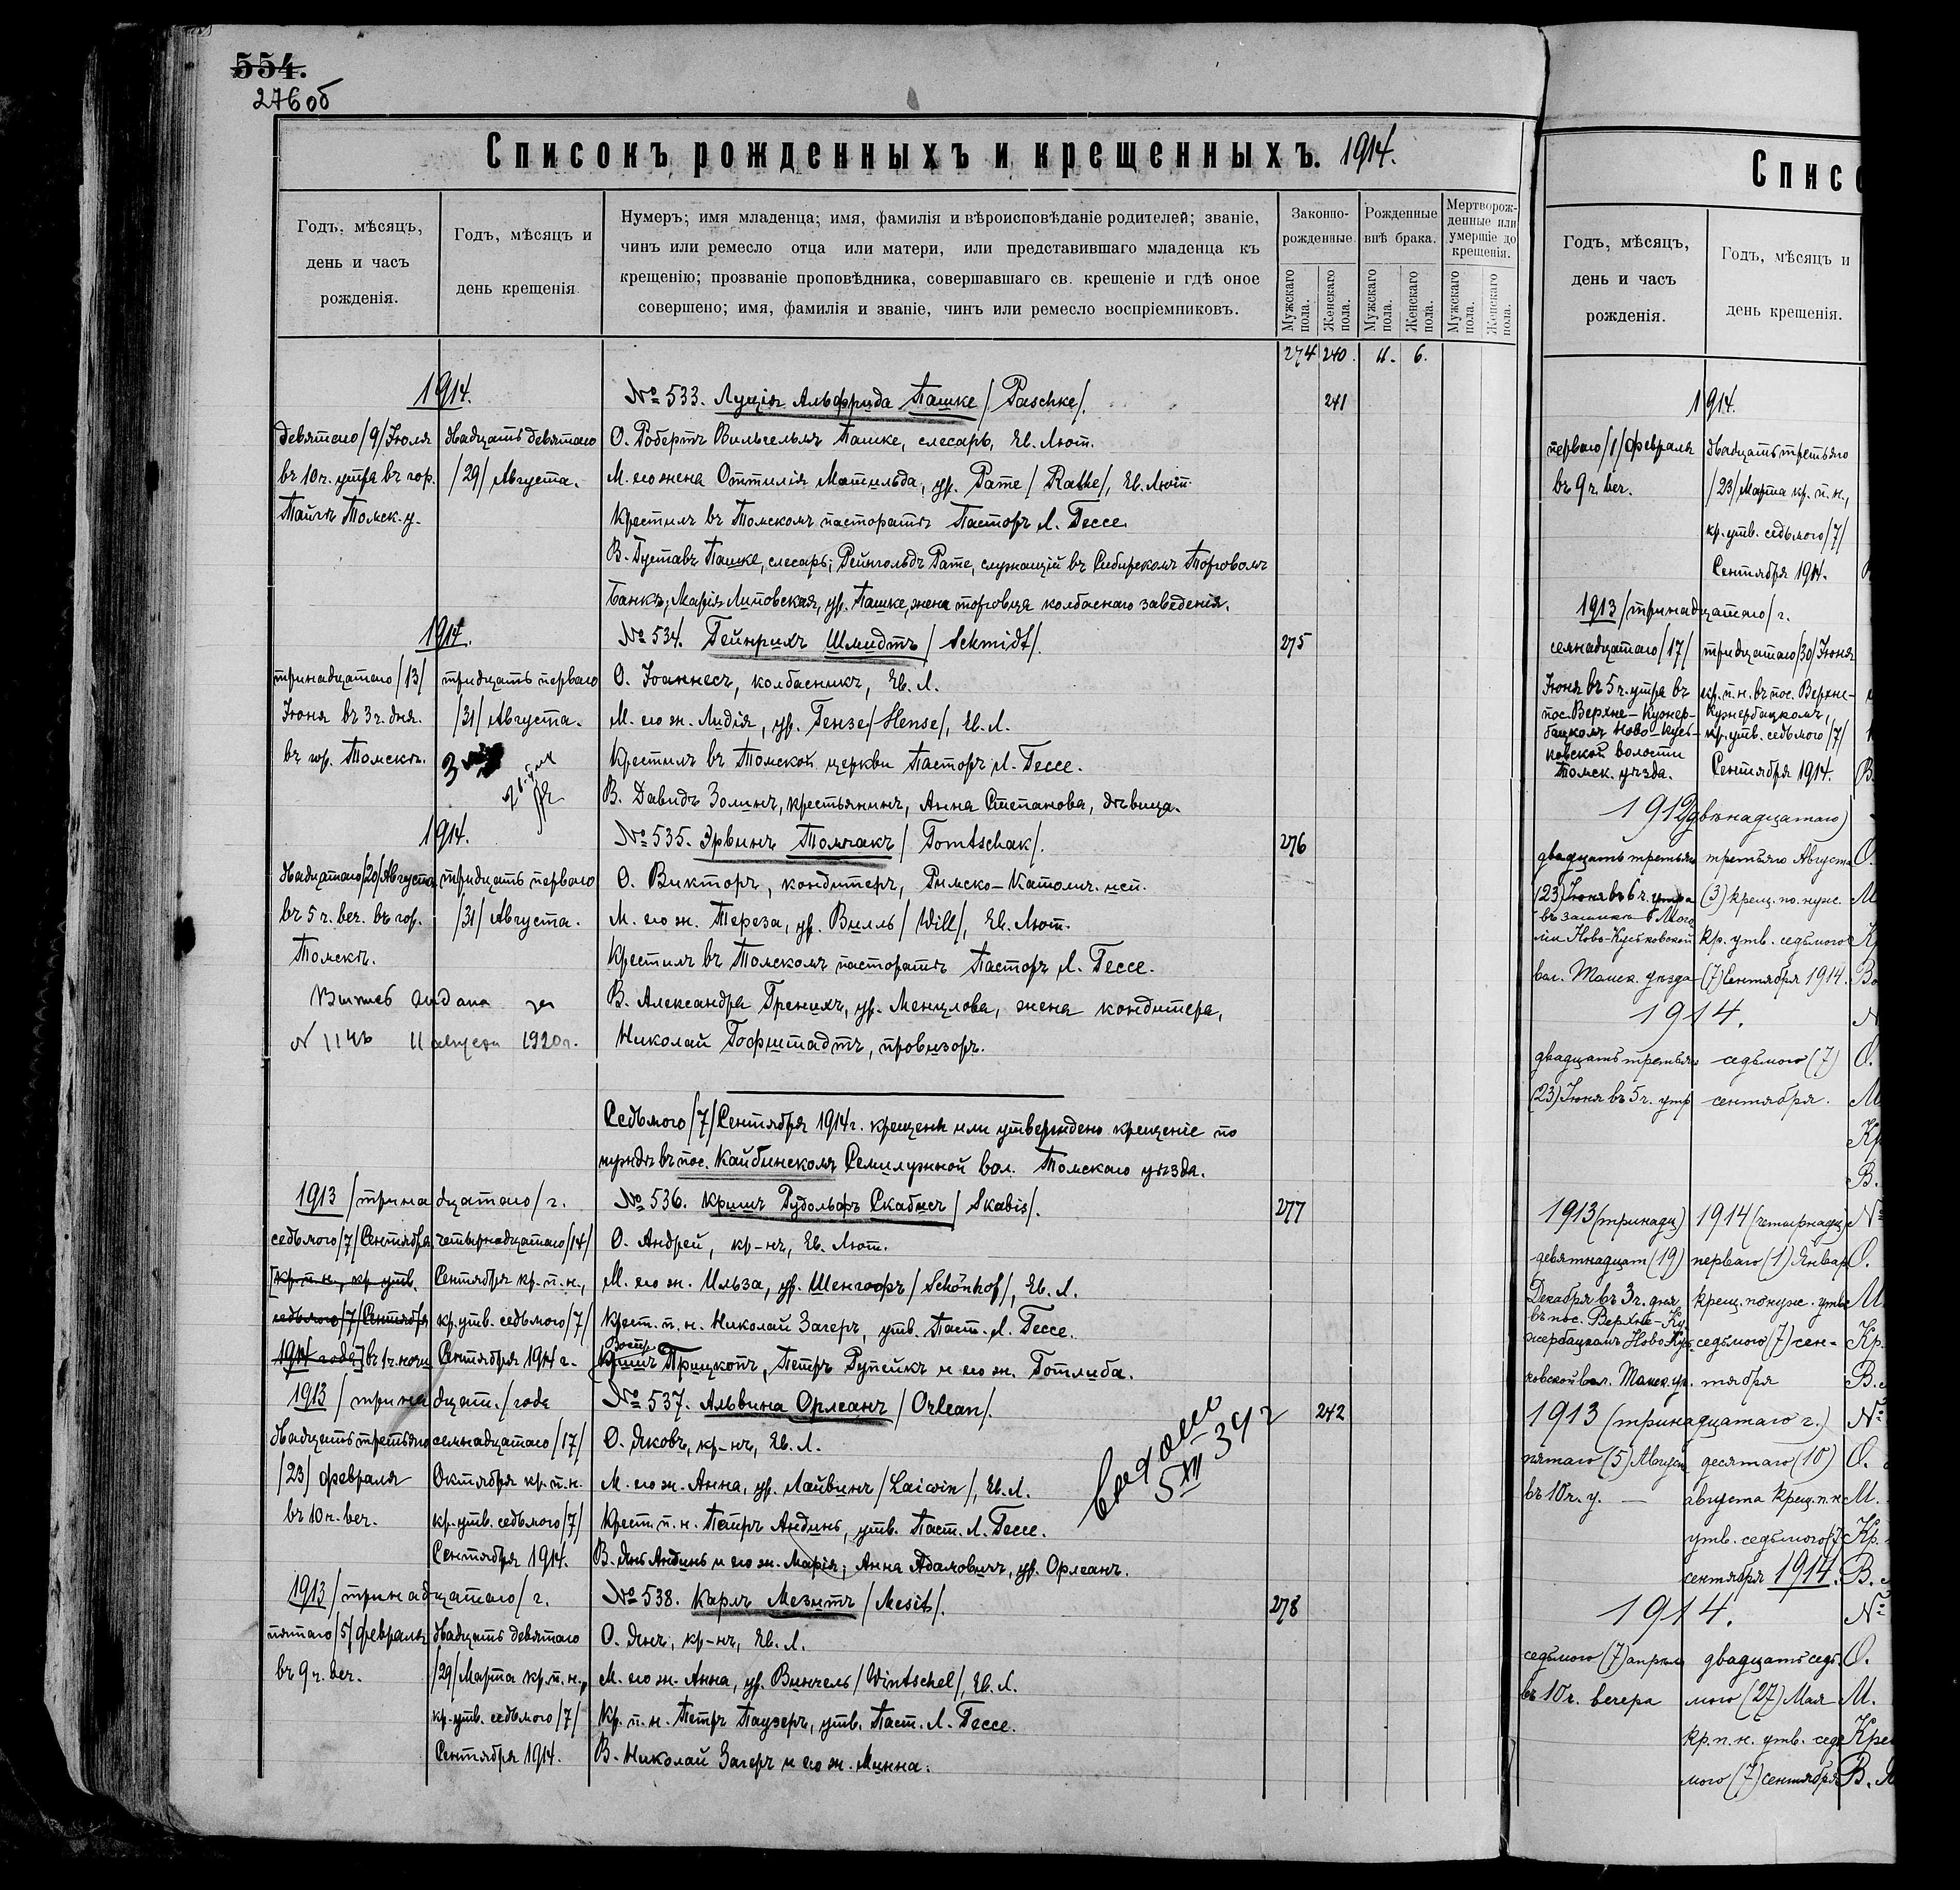 554.
276об
Списокъ рожденныхъ и крещенныхъ. 1914.
Годъ, мѣсяцъ,
день и часъ
рожденія.
Годъ, мѣсяцъ и
день крещенія
Нумеръ; имя младенца; имя, фамилія и вѣроисповѣданіе родителей; званіе,
чинъ или ремесло отца или матери, или представившаго младенца къ
крещенію; прозваніе проповѣдника, совершавшаго св. крещеніе и гдѣ оное
совершено; имя, фамилія и званіе, чинъ или ремесло воспріемниковъ.
Законно-
рожденные
Рожденные
внѣ брака.
Мертворож-
денные или
умершіе до
крещенія.
Мужскаго пола.
Женскаго пола.
Мужскаго пола.
Женскаго пола.
Мужскаго пола.
Женскаго пола.
274 240. 11. 6.
1914. №533. Луція Альфрида Пашке /Paschke/. 241
девятаго/9/Іюля двадцать девятаго О. Робертъ Вильгельмъ Пашке, слесарь, Ев. Лют.
въ 10ч. утра въ гор. /29/ Августа. М. его жена Оттилія Матильда, ур. Рате /Rathe/, Ев. Лют.
Тайгѣ Томск. у. Крестилъ въ Томскомъ пасторатѣ Пасторъ Л. Гессе.
В. Густавъ Пашке, слесарь; Рейнгольдъ Рате, служащій въ Сибирскомъ Торговомъ
Банкѣ; Марія Липовская, ур. Пашке, жена торговца колбаснаго заведенія.
1914. №534. Гейнрихъ Шмидтъ /Schmidt/. 275
тринадцатаго/13/ тридцать перваго О. Іоаннесъ, колбасникъ, Ев. Л.
Іюня въ 3ч. дня. /31/ Августа. М. его ж. Лидія, ур. Гензе /Hense/, Ев. Л.
въ гор. Томскѣ. Крестилъ въ Томской церкви Пасторъ Л. Гессе.
В. Давидъ Золинъ, крестьянинъ, Анна Степанова, дѣвица.
1914. №535. Эрвинъ Томчакъ /Tomtschak/. 276
двадцатаго/20/Августа тридцать перваго О. Викторъ, кондитеръ, Римско-Католич. исп.
въ 5ч. веч. въ гор. /31/ Августа. М. его ж. Тереза, ур. Вилль /Will/, Ев. Лют.
Томскѣ. Крестилъ въ Томскомъ пасторатѣ Пасторъ Л. Гессе.
В. Александра Гренихъ, ур. Менцлова, жена кондитера,
11 августа 1920г. Николай Гофштадтъ, провизоръ.
Седьмого/7/Сентября 1914г. крещены или утверждено крещеніе по
нуждѣ въ пос. Кайбинскомъ Семилужной вол. Томскаго уѣзда.
1913 /тринадцатаго/ г. №536. Кришъ Рудольфъ Скабисъ /Skabis/. 277
седьмого/7/Сентября четырнадцатаго/14/ О. Андрей, кр-нъ, Ев. Лют.
[кр. п. н., кр. утв. Сентября кр. п. н., М. его ж. Ильза, ур. Шенгофъ /Schönhof/, Ев. Л.
седьмого/7/Сентября кр. утв. седьмого/7/ Крест. п. н. Николай Загеръ, утв. Паст. Л. Гессе.
1914 года] въ 1ч. ночи Сентября 1914г. Воспр. Кришъ Прицкопъ, Петръ Рупейкъ и его ж. Готлиба.
1913 /тринадцат./ года №537. Альвина Орлеанъ /Orlean/. 242
двадцать третьяго семнадцатаго/17/ О. Яковъ, кр-нъ, Ев. Л.
/23/ февраля Октября кр. п. н. М. его ж. Анна, ур. Лайвинъ /Laiwin/, Ев. Л.
въ 10ч. веч. кр. утв. седьмого/7/ Крест. п. н. Петръ Андинь, утв. Паст. Л. Гессе.
Сентября 1914. В. Янъ Андинь и его ж. Марія; Анна Адамовичъ, ур. Орлеанъ.
1913 /тринадцатаго/ г. №538. Карлъ Мезитъ /Mesit/. 278
пятаго/5/февраля двадцать девятаго О. Янъ, кр-нъ, Ев. Л.
въ 9ч. веч. /29/Марта кр. п. н., М. его ж. Анна, ур. Винчель /Wintschel/, Ев. Л.
кр. утв. седьмого/7/ Кр. п. н. Петръ Паузеръ, утв. Паст. Л. Гессе.
Сентября 1914. В. Николай Загеръ и его ж. Минна.
Списо
Годъ, мѣсяцъ,
день и часъ
рожденія.
Годъ, мѣсяцъ и
день крещенія.
1914.
перваго/1/февраля двадцать третьяго
въ 9ч. веч. /23/Марта кр. п. н.,
кр. утв. седьмого/7/
Сентября 1914.
1913 /тринадцатаго/ г.
семнадцатаго/17/ тридцатаго/30/Іюня
Іюня въ 5ч. утра въ кр. п. н. въ пос. Верхне-
пос. Верхне-Кужер- Кужербацкомъ,
бацкомъ Ново-Кусь- кр. утв. седьмого/7/
ковской волости
Томск. уѣзда. Сентября 1914. В.
1912 (двѣнадцатаго)
двадцать третьяго третьяго Августа О.
(23) Іюня въ 6ч. утра (3) крещ. по нуж. М
ли Ново-Куськовской кр. утв. седьмого К
вол. Томск. уѣзда (7) Сентября 1914. В
1914. №
двадцать третьяго седьмого (7) О.
(23) Іюня въ 5ч. утр сентября. М
Кр
В.
1913 (тринадц) 1914 (четырнадц) №
девятнадцат (19) перваго (1) Январ О.
Декабря въ 3ч. дня крещ. по нуж. утв М
въ пос. Верхне-Ку-
жербацкомъ Ново Кусь- седьмого (7) сен- Кр.
ковской вол. Томск. у. тября В.
1913 (тринадцатаго г.) №
пятаго (5) Август десятаго (10) О.
въ 10ч. у. — августа крещ. п. н М.
утв. седьмого (7) Кр.
сентября 1914. В.
1914. №
седьмого (7) апрѣля двадцать седь- О.
въ 10ч. вечера мого (27) Мая М.
кр. п. н. утв. седь Крес
мого (7) сентября В.